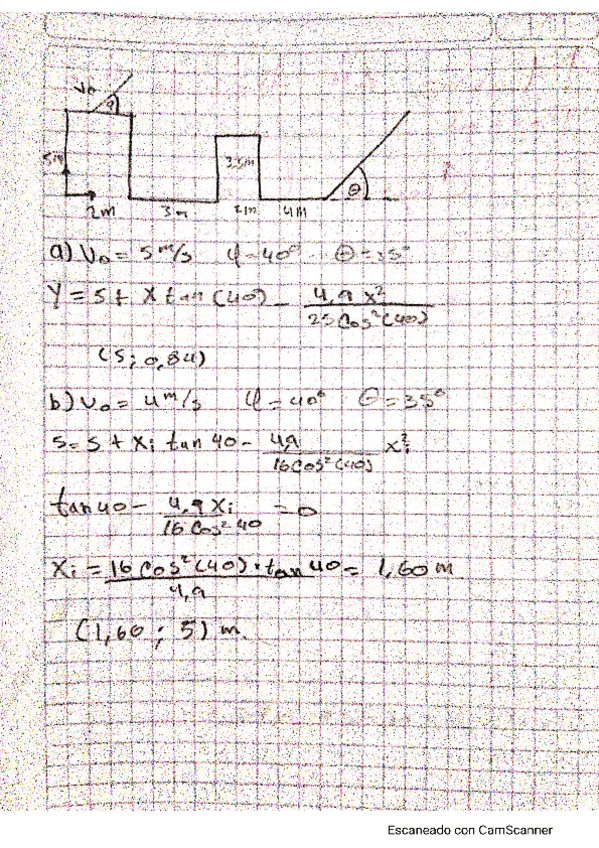 Vo
φ
5m
3.5m
θ
2m 3m 2m 4m
a) Vo = 5 m/s φ = 40° θ = 35°
Y = 5 + X tan (40) - 4,9 x² / 25 Cos² (40)
(5; 0,84)
b) Vo = 4 m/s φ = 40° θ = 35°
5 = 5 + Xi tan 40 - 4,9 / 16 Cos² (40) xi²
tan 40 - 4,9 Xi / 16 Cos² 40 = 0
Xi = 16 Cos² (40) · tan 40 / 4,9 = 1,60 m
(1,60 ; 5) m.
Escaneado con CamScanner